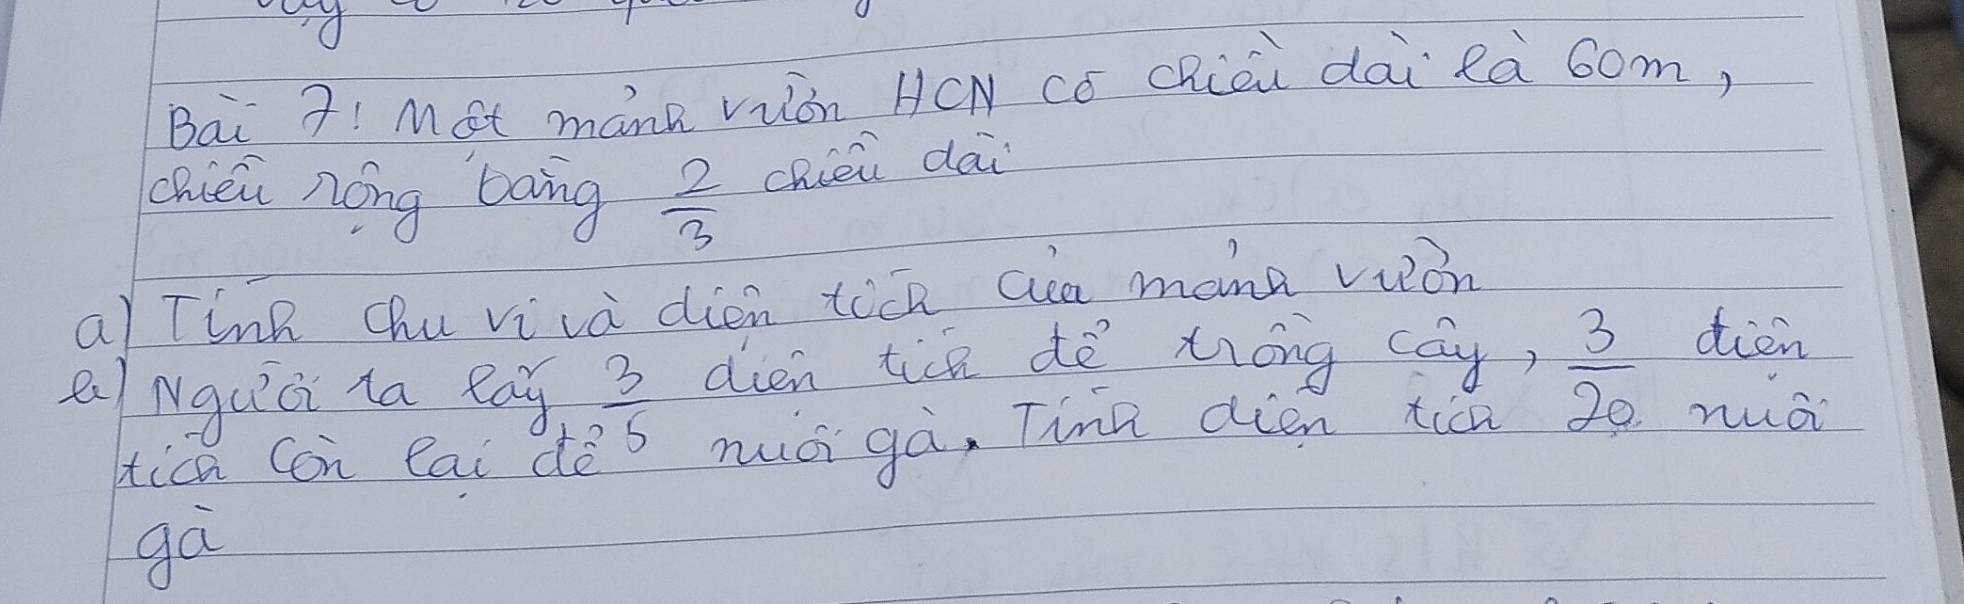 Bài 7: Một mảnh vườn HCN có chiều dài là 60m,
chiều rộng bằng 2/3 chiều dài
a) Tính chu vi và diện tích của mảnh vườn
b) Người ta lấy 3/5 diện tích để trồng cây, 3/20 diện
tích còn lại để nuôi gà. Tính diện tích nuôi
gà